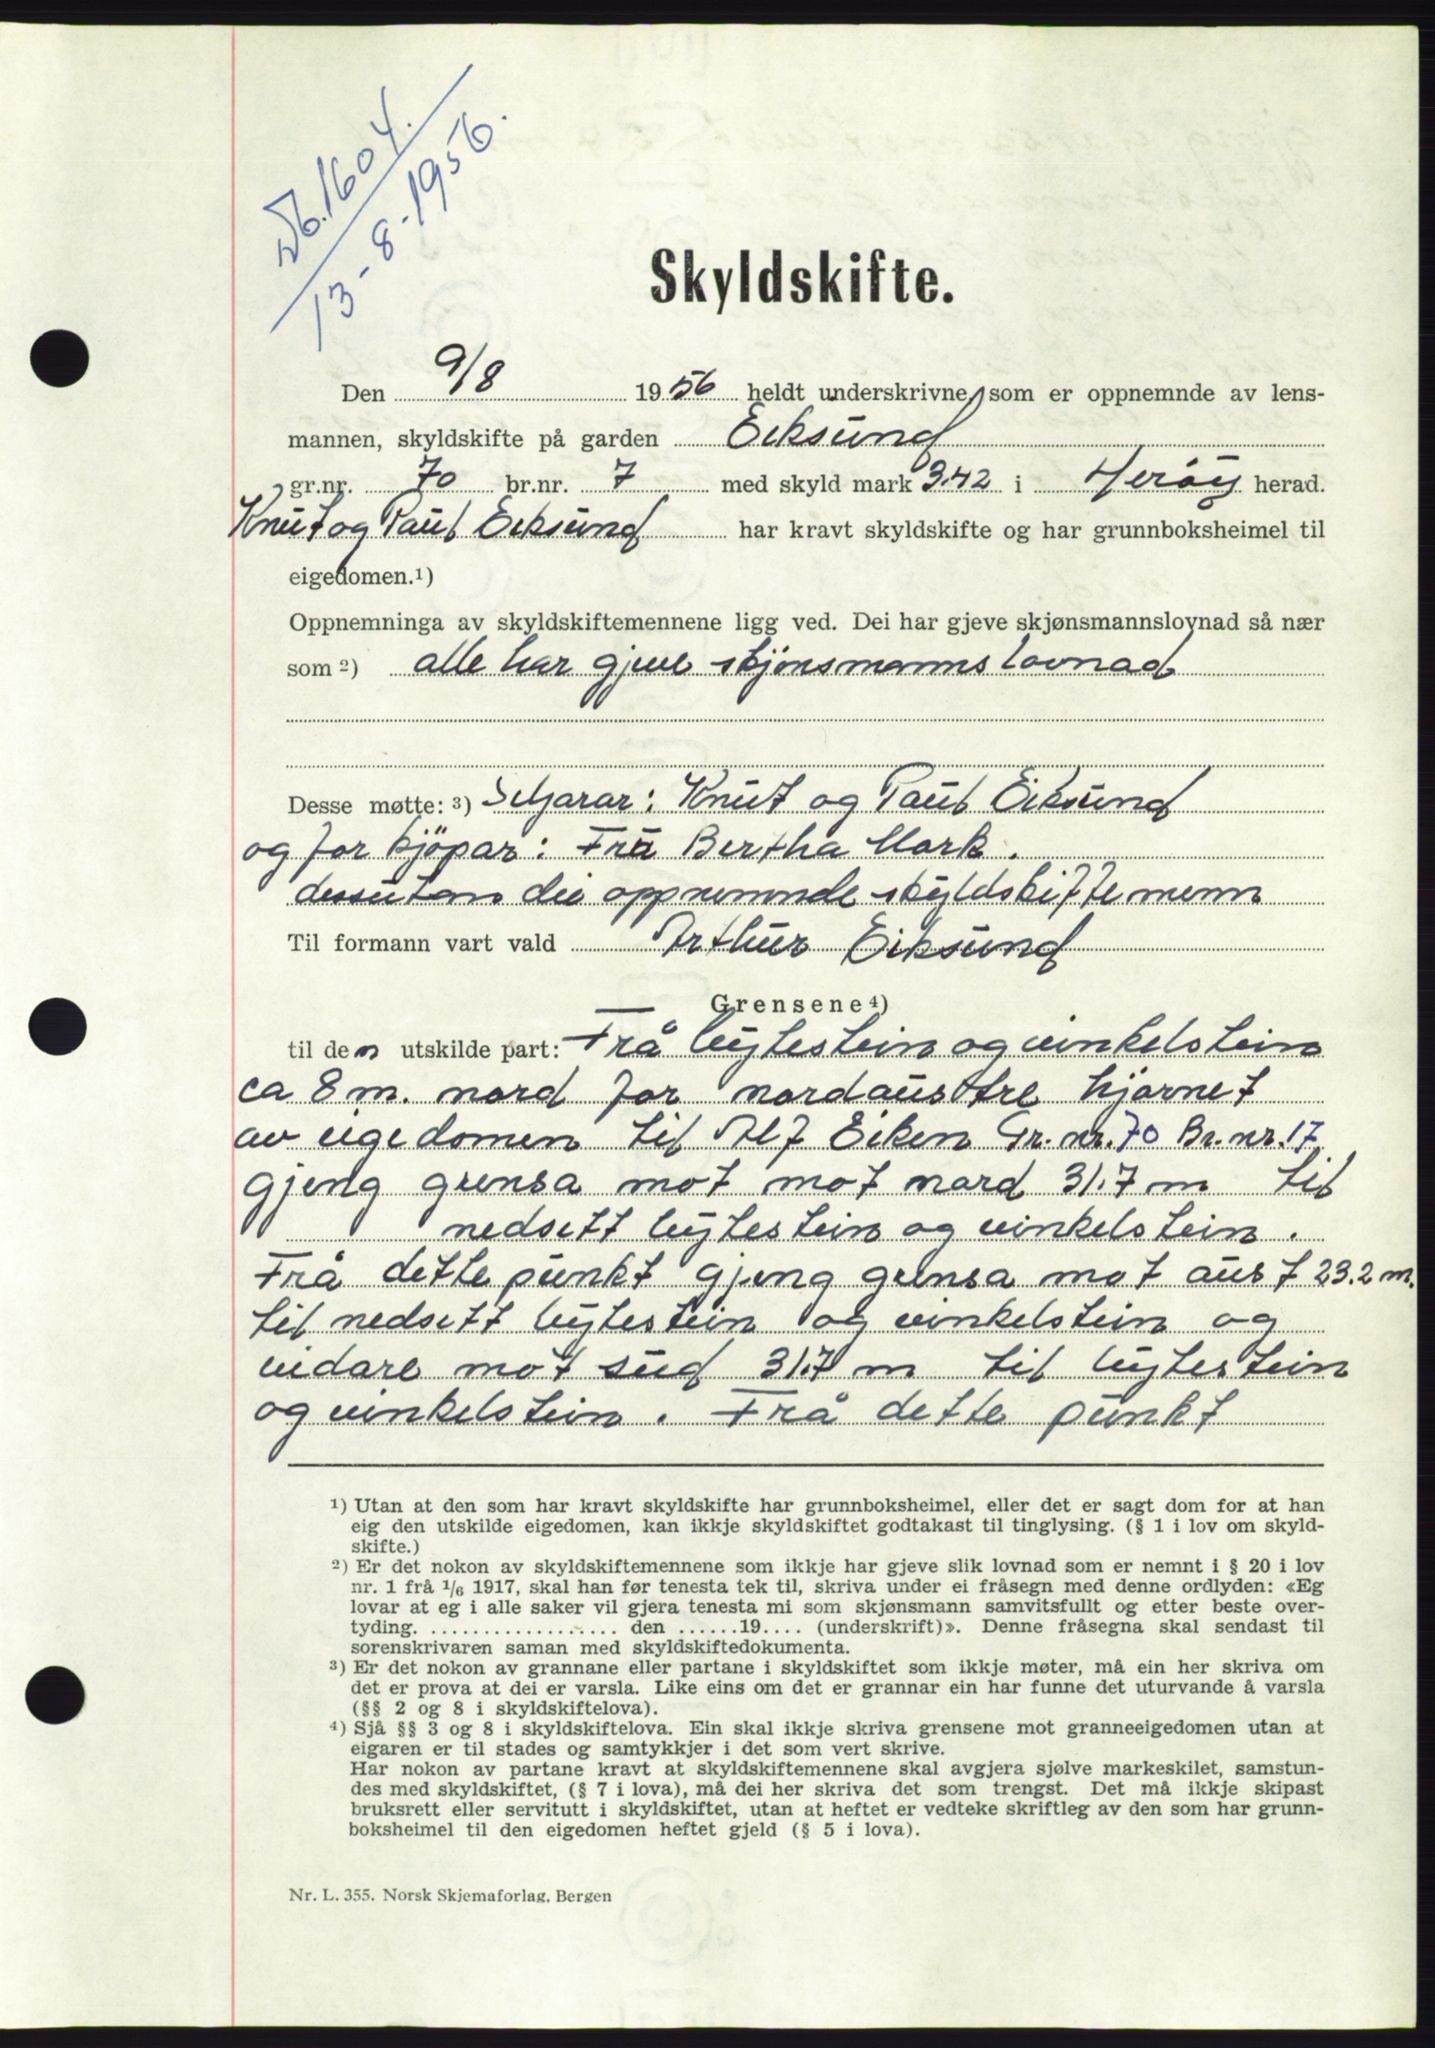 Db. 1604.
13-8-1956.
Skyldskifte.
Den 9/8 1956 heldt underskrivne, som er oppnemnde av lens-
mannen, skyldskifte på garden Eiksund
gr.nr. 70 br.nr. 7 med skyld mark 3.42 i Herøy herad.
Knut og Paul Eiksund har kravt skyldskifte og har grunnboksheimel til
eigedomen.¹)
Oppnemninga av skyldskiftemennene ligg ved. Dei har gjeve skjønsmannslovnad så nær
som ²) alle har gjeve skjönsmannslovnad
Desse møtte: ³) Seljarar: Knut og Paul Eiksund
og for kjöpar: Fru Bertha Mork.
dessutan dei oppnemnde skyldskiftemenn
Til formann vart vald Arthur Eiksund
Grensene ⁴)
til den utskilde part: Frå bytestein og vinkelstein
ca 8 m. nord for nordaustre hjørnet
av eigedomen til Alf Eiken Gr. nr. 70 Br. nr. 17
gjeng grensa mot mot nord 31.7 m til
nedsett bytestein og vinkelstein.
Frå dette punkt gjeng grensa mot aust 23.2 m.
til nedsett bytestein og vinkelstein og
vidare mot sud 31.7 m til bytestein
og vinkelstein. Frå dette punkt
¹) Utan at den som har kravt skyldskifte har grunnboksheimel, eller det er sagt dom for at han
eig den utskilde eigedomen, kan ikkje skyldskiftet godtakast til tinglysing. (§ 1 i lov om skyld-
skifte.)
²) Er det nokon av skyldskiftemennene som ikkje har gjeve slik lovnad som er nemnt i § 20 i lov
nr. 1 frå 1/6 1917, skal han før tenesta tek til, skriva under ei fråsegn med denne ordlyden: «Eg
lovar at eg i alle saker vil gjera tenesta mi som skjønsmann samvitsfullt og etter beste over-
tyding. .................. den ......19.... (underskrift)». Denne fråsegna skal sendast til
sorenskrivaren saman med skyldskiftedokumenta.
³) Er det nokon av grannane eller partane i skyldskiftet som ikkje møter, må ein her skriva om
det er prova at dei er varsla. Like eins om det er grannar ein har funne det uturvande å varsla
(§§ 2 og 8 i skyldskiftelova).
⁴) Sjå §§ 3 og 8 i skyldskiftelova. Ein skal ikkje skriva grensene mot granneeigedomen utan at
eigaren er til stades og samtykkjer i det som vert skrive.
Har nokon av partane kravt at skyldskiftemennene skal avgjera sjølve markeskilet, samstun-
des med skyldskiftet, (§ 7 i lova), må dei her skriva det som trengst. Det må ikkje skipast
bruksrett eller servitutt i skyldskiftet, utan at heftet er vedteke skriftleg av den som har grunn-
boksheimel til den eigedomen heftet gjeld (§ 5 i lova).
Nr. L. 355. Norsk Skjemaforlag, Bergen